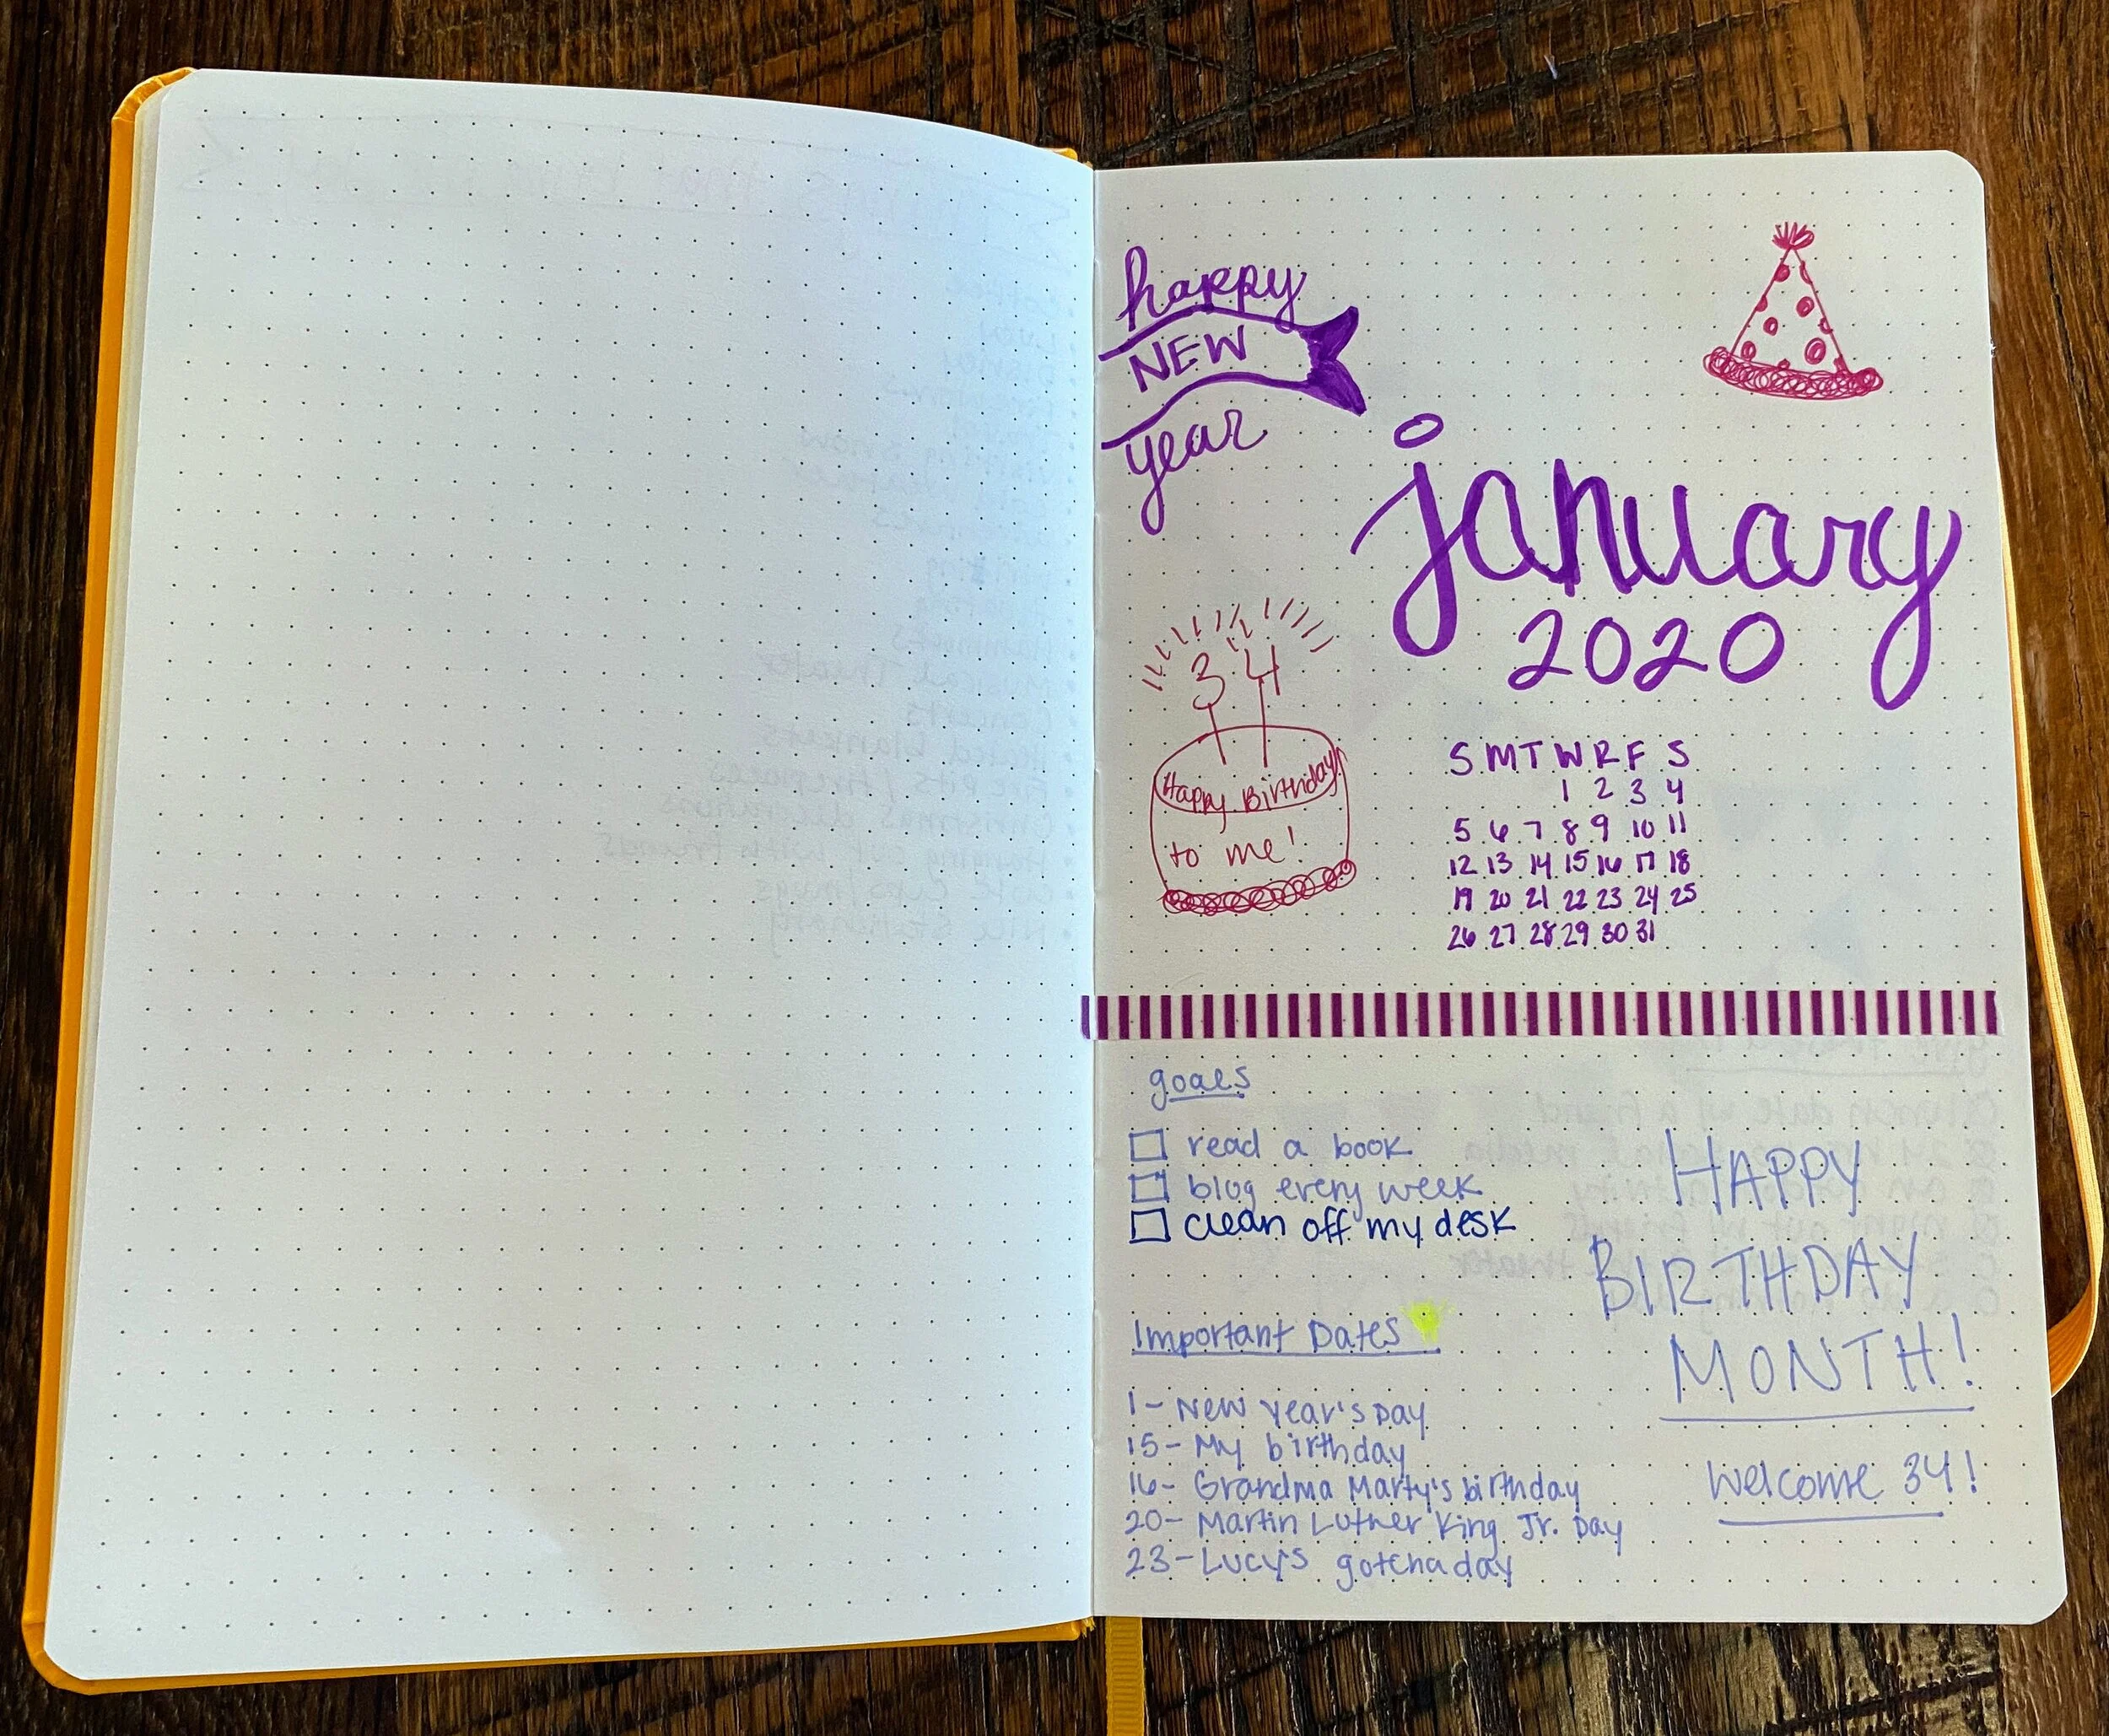 happy
NEW
year
january
2020
34
Happy Birthday
to me!
S M T W R F S
1 2 3 4
5 6 7 8 9 10 11
12 13 14 15 16 17 18
19 20 21 22 23 24 25
26 27 28 29 30 31
goals
read a book
blog every week
clean off my desk
HAPPY
BIRTHDAY
MONTH!
Welcome 34!
Important Dates
1- New Year's Day
15- My birthday
16- Grandma Marty's birthday
20- Martin Luther King Jr. Day
23- Lucy's gotcha day